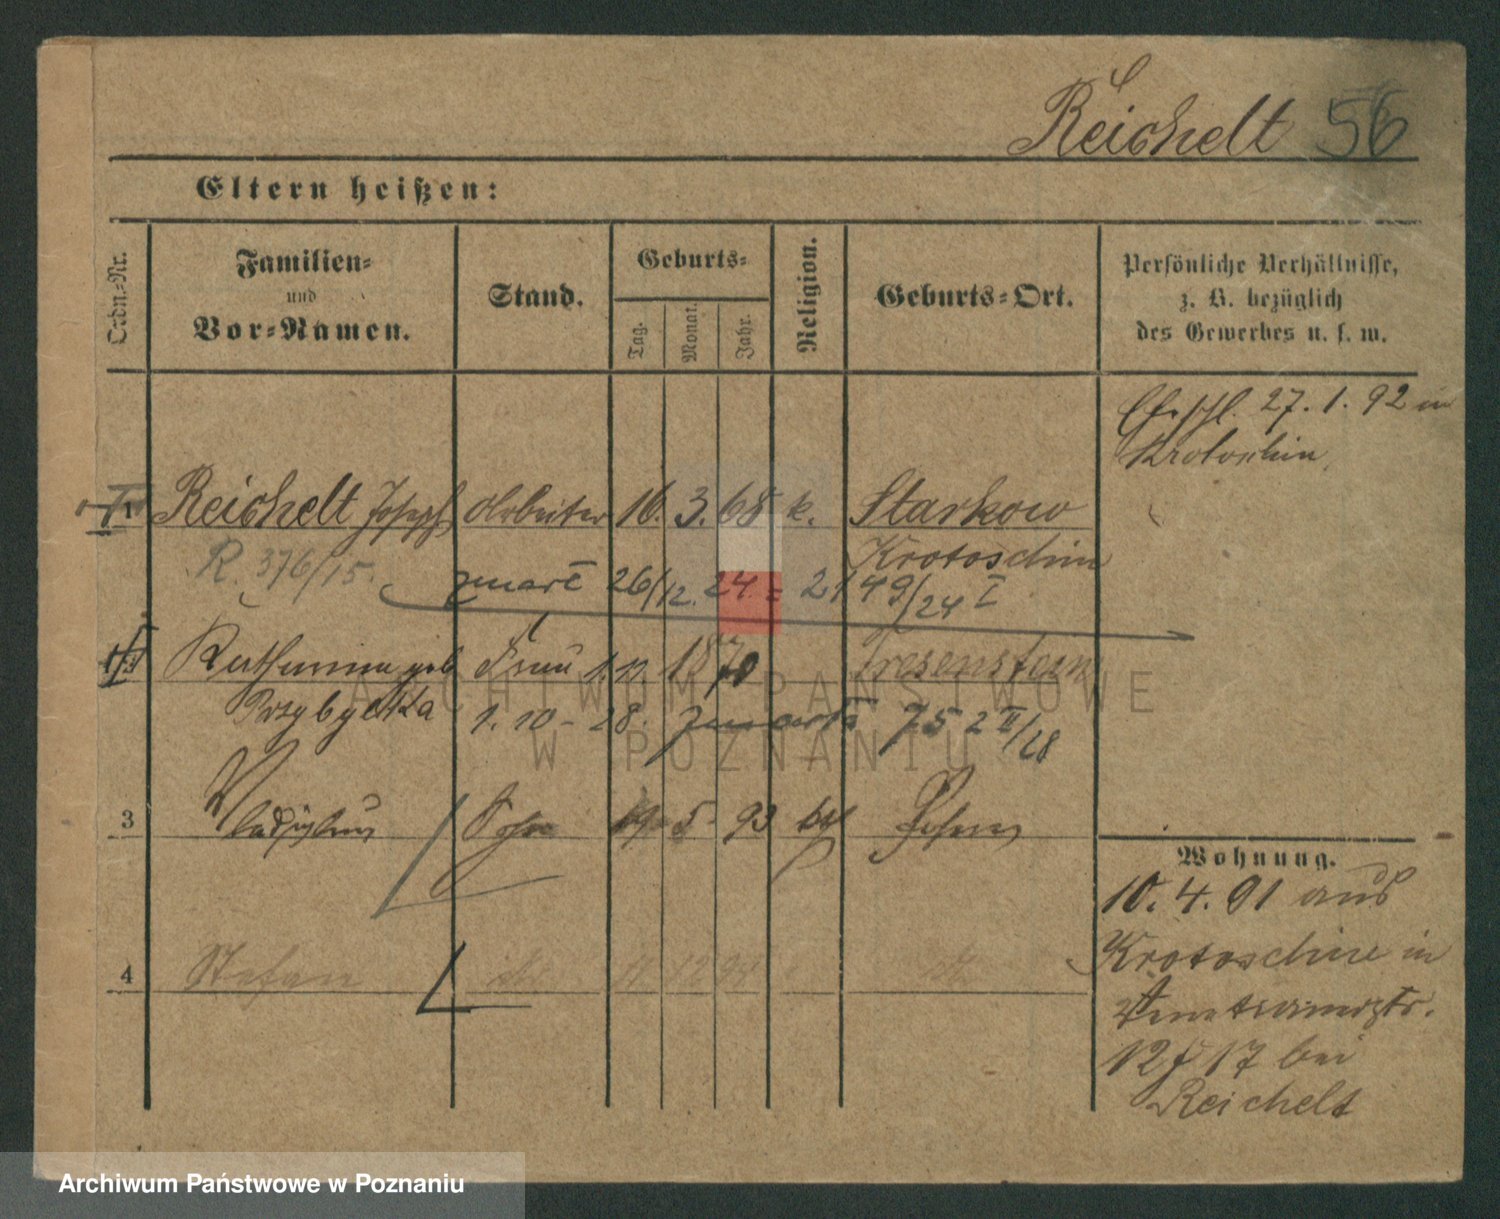 Reichelt 56
Eltern heißen:
Ordn.-Nr.
Familien-
und
Vor-Namen.
Stand.
Geburts-
Tag.
Monat.
Jahr.
Religion.
Geburts-Ort.
Persönliche Verhältnisse,
z. B. bezüglich
des Gewerbes u. s. w.
27. 1. 92 in
Krotoschin
1 Reichelt Joseph Arbeiter 16. 3. 68 k. Starkow
Krotoschin
R. 376/15
zmarł 26/12. 24 = 2149/24 I
Katharina geb Frau 1. 11. 1870
Przybylka 1. 10 - 28. zmarła 752 II/28
3 Ladislaus Sohn 19 5 93 Posen
4 Stefan
Wohnung.
10. 4. 91 aus
Krotoschin in
Venetianerstr.
12 17 bei
Reichelt
ARCHIWUM PAŃSTWOWE
W POZNANIU
Archiwum Państwowe w Poznaniu